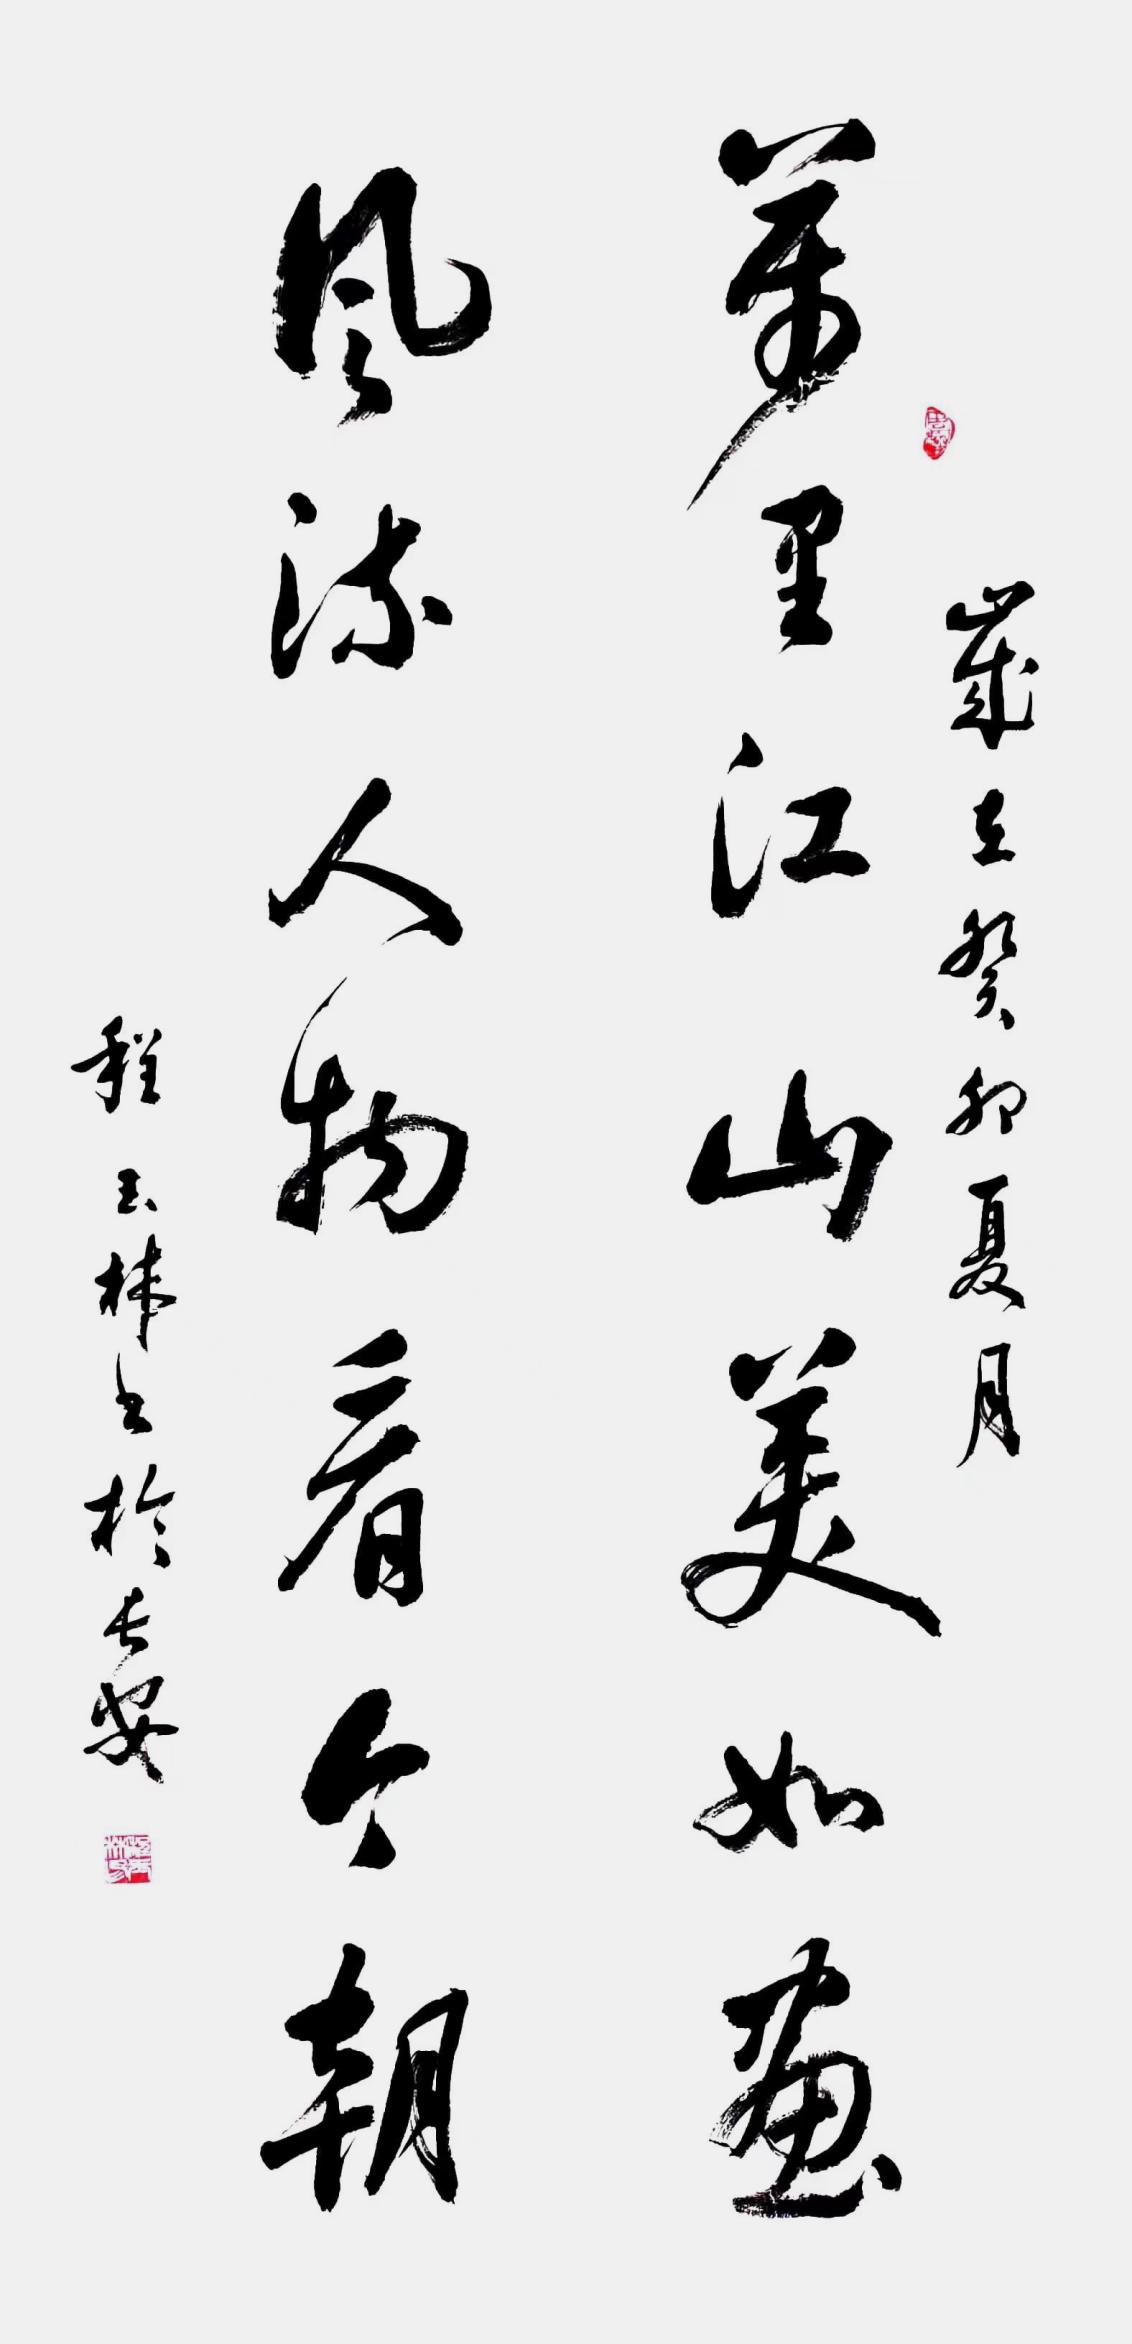 萬里江山美如畫
風流人物看今朝
歲在癸卯夏月
程玉林書於長安